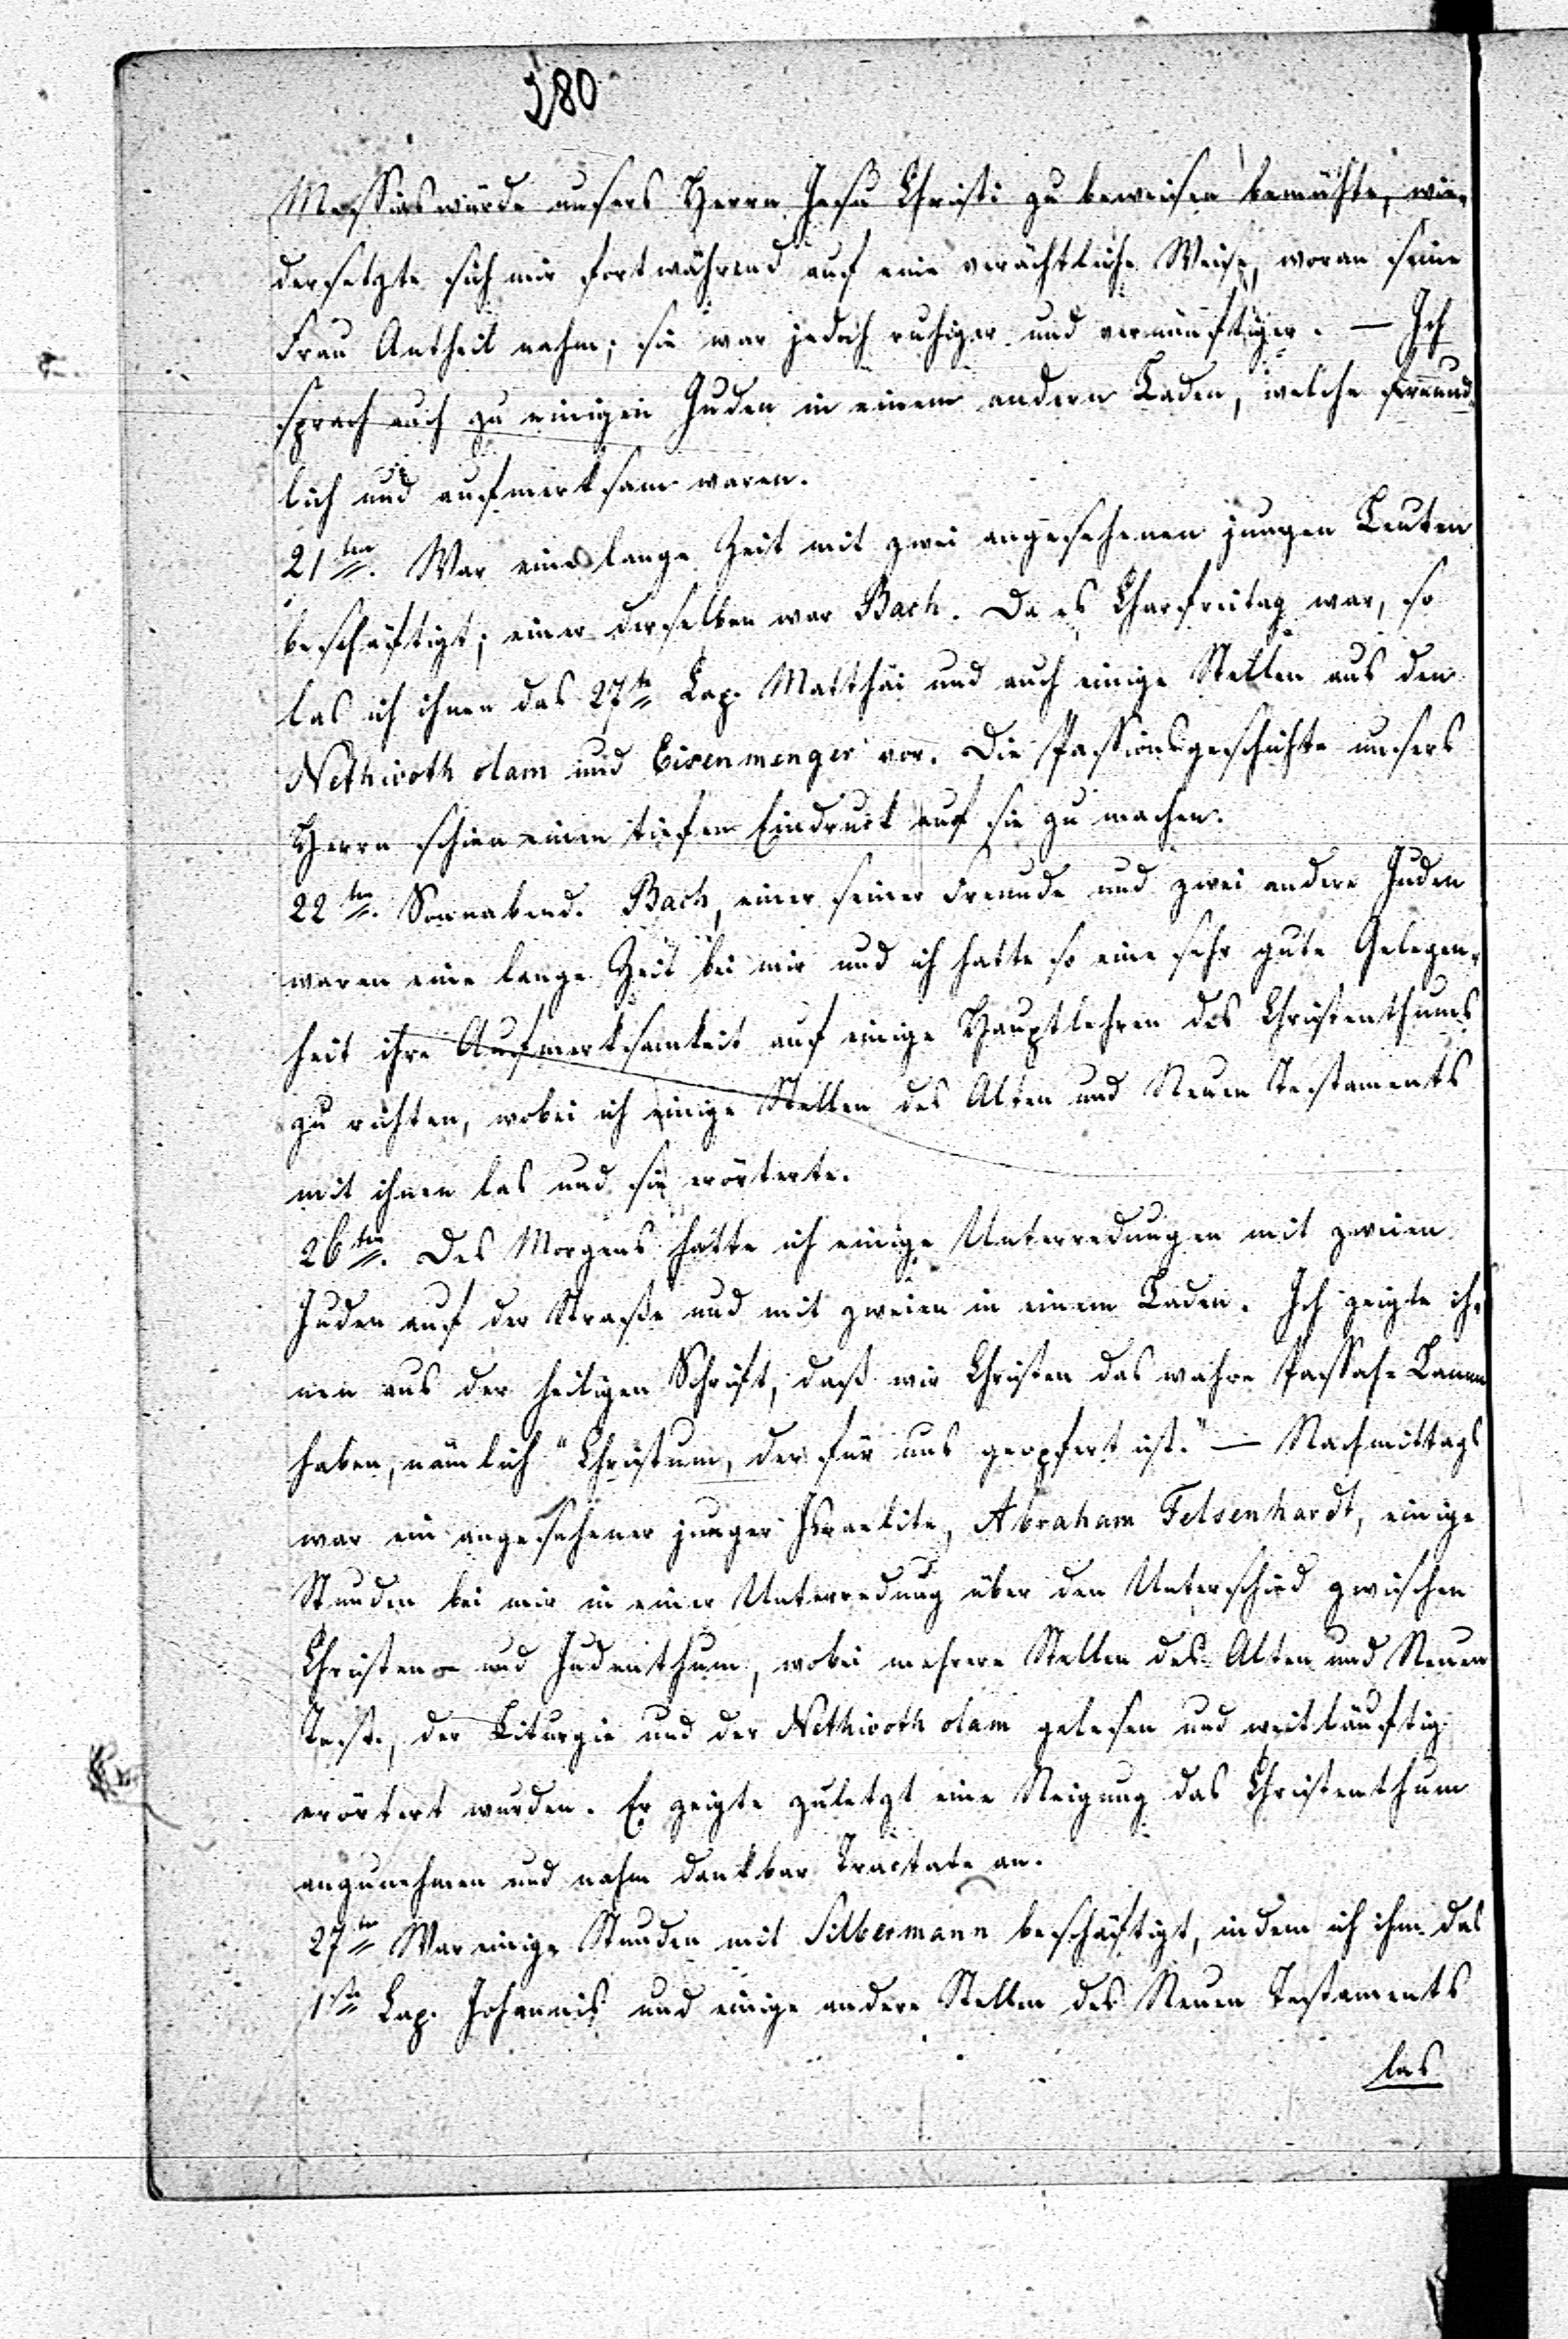 280
Messiaswürde unsers Herrn Jesu Christi zu beweisen bemühte, wie-
dersetzte sich mir fortwährend auf eine verächtliche Weise, woran seine
Frau Antheil nahm; sie war jedoch ruhiger und vernünftiger. — Ich
sprach auch zu einigen Juden in einem andern Laden, welche freund-
lich und aufmerksam waren.
21ten. War eine lange Zeit mit zwei angesehenen jungen Leuten
beschäftigt; einer derselben war Bach. Da es Charfreitag war, so
las ich ihnen das 27te Cap. Matthäi und auch einige Stellen aus den
Nethivoth olam und Eisenmenger vor. Die Passionsgeschichte unsers
Herrn schien einen tiefen Eindruck auf sie zu machen.
22ten. Sonnabend. Bach, einer seiner Freunde und zwei andere Juden
waren eine lange Zeit bei mir und ich hatte so eine sehr gute Gelegen-
heit ihre Aufmerksamkeit auf einige Hauptlehren des Christenthums
zu richten, wobei ich einige Stellen des Alten und Neuen Testaments
mit ihnen las und sie erörterte.
26ten. Des Morgens hatte ich einige Unterredungen mit zweien
Juden auf der Straße und mit zweien in einem Laden. Ich zeigte ih-
nen aus der heiligen Schrift, daß wir Christen das wahre Passah-Lamm
haben, nämlich "Christum, der für uns geopfert ist." — Nachmittags
war ein angesehener junger Israelite, Abraham Felsenhardt, einige
Stunden bei mir in einer Unterredung über den Unterschied zwischen
Christen- und Judenthum, wobei mehrere Stellen des Alten und Neuen
Test., der Liturgie und der Nethivoth olam gelesen und weitläuftig
erörtert wurden. Er zeigte zuletzt eine Neigung das Christenthum
anzunehmen und nahm dankbar Tractate an.
27ten War einige Stunden mit Silbermann beschäftigt, indem ich ihm das
1ste Cap. Johannis und einige andere Stellen des Neuen Testaments
las